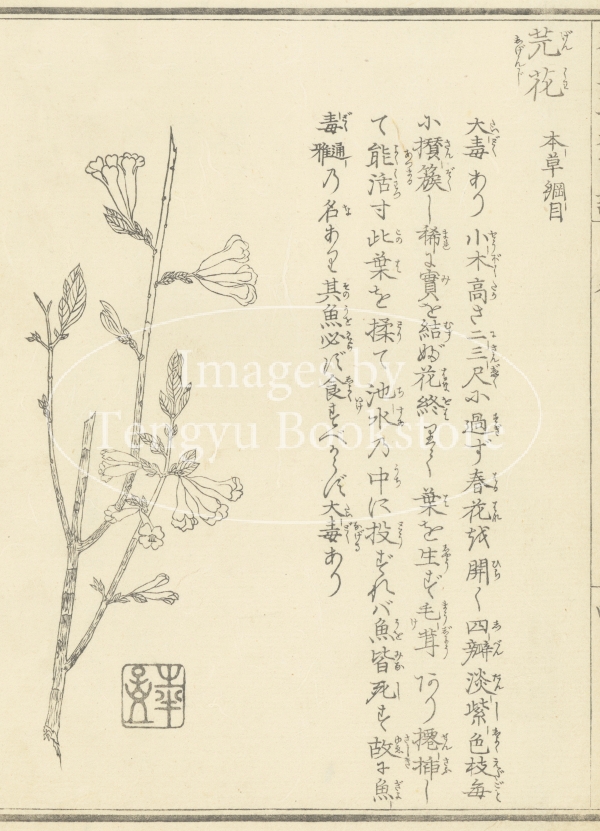 芫花
げん
くわ
本草綱目
大毒あり 小木高さ二三尺に過ず春花を開く四瓣淡紫色枝毎
に攅簇し稀に實を結ぶ花終りて葉を生ず毛茸あり攓挿し
て能活す此葉を揉て池水の中に投ずれバ魚皆死す故に魚
毒通雅乃名あり其魚必ず食すべからず大毒あり
Images by
Tengyu Bookstore